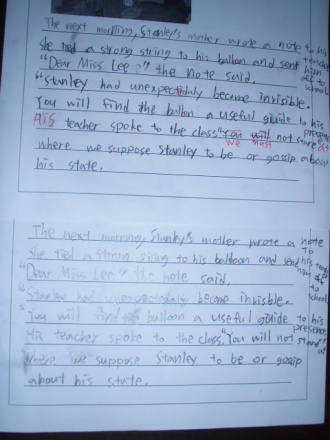 The next morning, Stanley's mother wrote a note to his teacher
She tied a strong string to his balloon and sent him off to school
"Dear Miss Lee" the note said.
"Stanley had unexpectedly become invisible.
You will find the ballon a useful guide to his presence
His teacher spoke to the class "You will not stare at
we must
where we suppose Stanley to be or gossip about
his state.
The next morning, Stanley's mother wrote a note to his teacher
She tied a strong string to his balloon and send him off to school
"Dear Miss Lee" the note said.
"Stanley had unexpectedly become invisible.
"You will find a balloon a useful guide to his presence
His teacher spoke to the class, "You will not stand at
where we suppose Stanley to be or gossip
about his state.